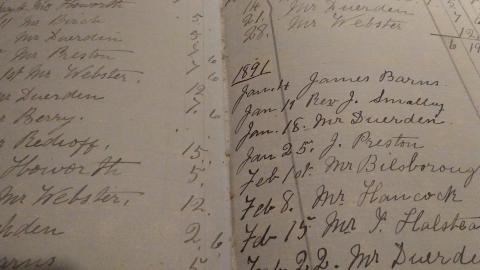 Howorth 5
Mr Birch 5
Mr Duerden
Mr Preston 6
1st Mr Webster. 12
Mr Duerden 7. 6
Mr Berry.
Mr Redhoff. 15.
Howorth 5.
Mr Webster. 12.
2. 6
5
14. Mr Duerden 7
21. 12
28. Mr Webster
6 19
1891
Jan. 4 James Barns
Jan 11 Rev J. Smalley
Jan. 18. Mr Duerden.
Jan 25. J. Preston
Feb 1st Mr Bilsboroug
Feb 8. Mr Hancock
Feb 15 Mr J. Halstea
Feb 22. Mr Duerde